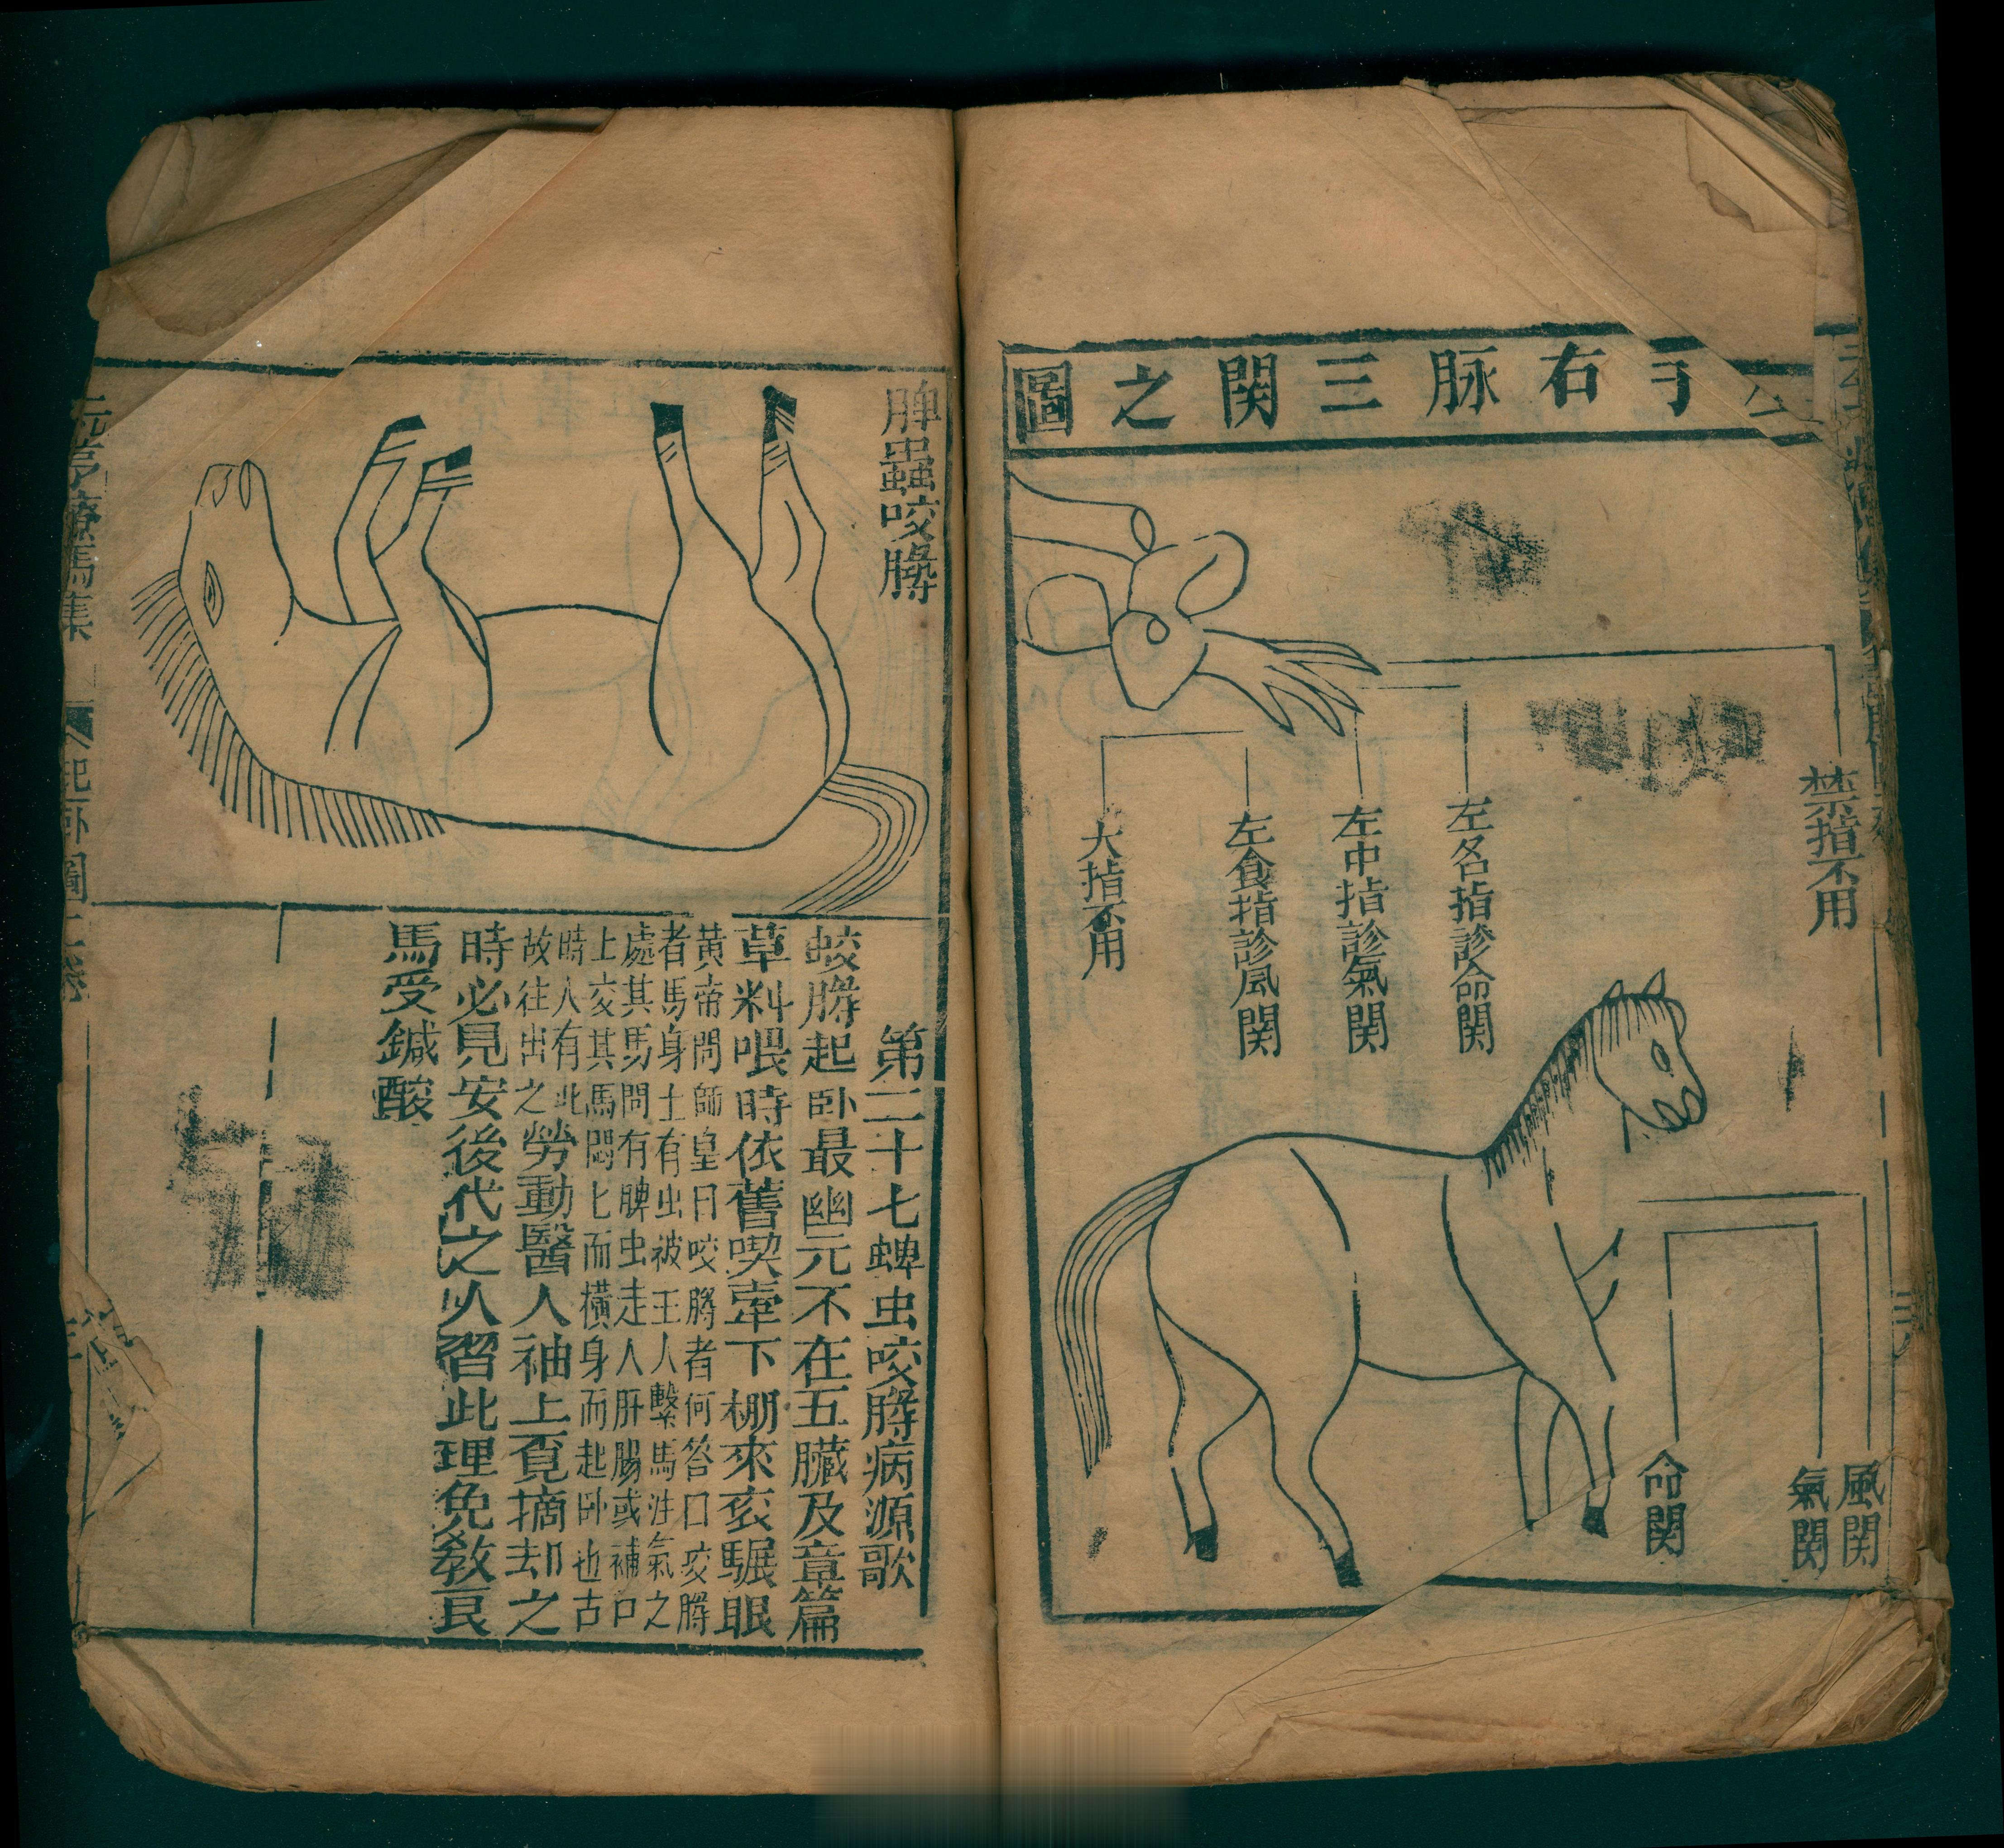 于右脉三関之圖
禁指不用
左名指診命関
左中指診氣関
左食指診風関
大指不用
風関
氣関
命関
脾蟲咬膦
第二十七蜱虫咬膦病源歌
蛟膦起卧最幽元不在五臟及章篇
草料喂時依舊喫牽下棚來衮驏眠
黄帝問師皇曰咬膦者何答曰咬膦
者馬身土有虫被王人繫馬注氣之
處其馬問有脾虫走人肝腸或補口
上咬其馬悶匕而橫身而起卧也古
時人有此
故往出之
勞動醫人袖上覔摘却之
時必見安後代之人習此理免教良
馬受鍼酸
元亨療馬集
起卧圖